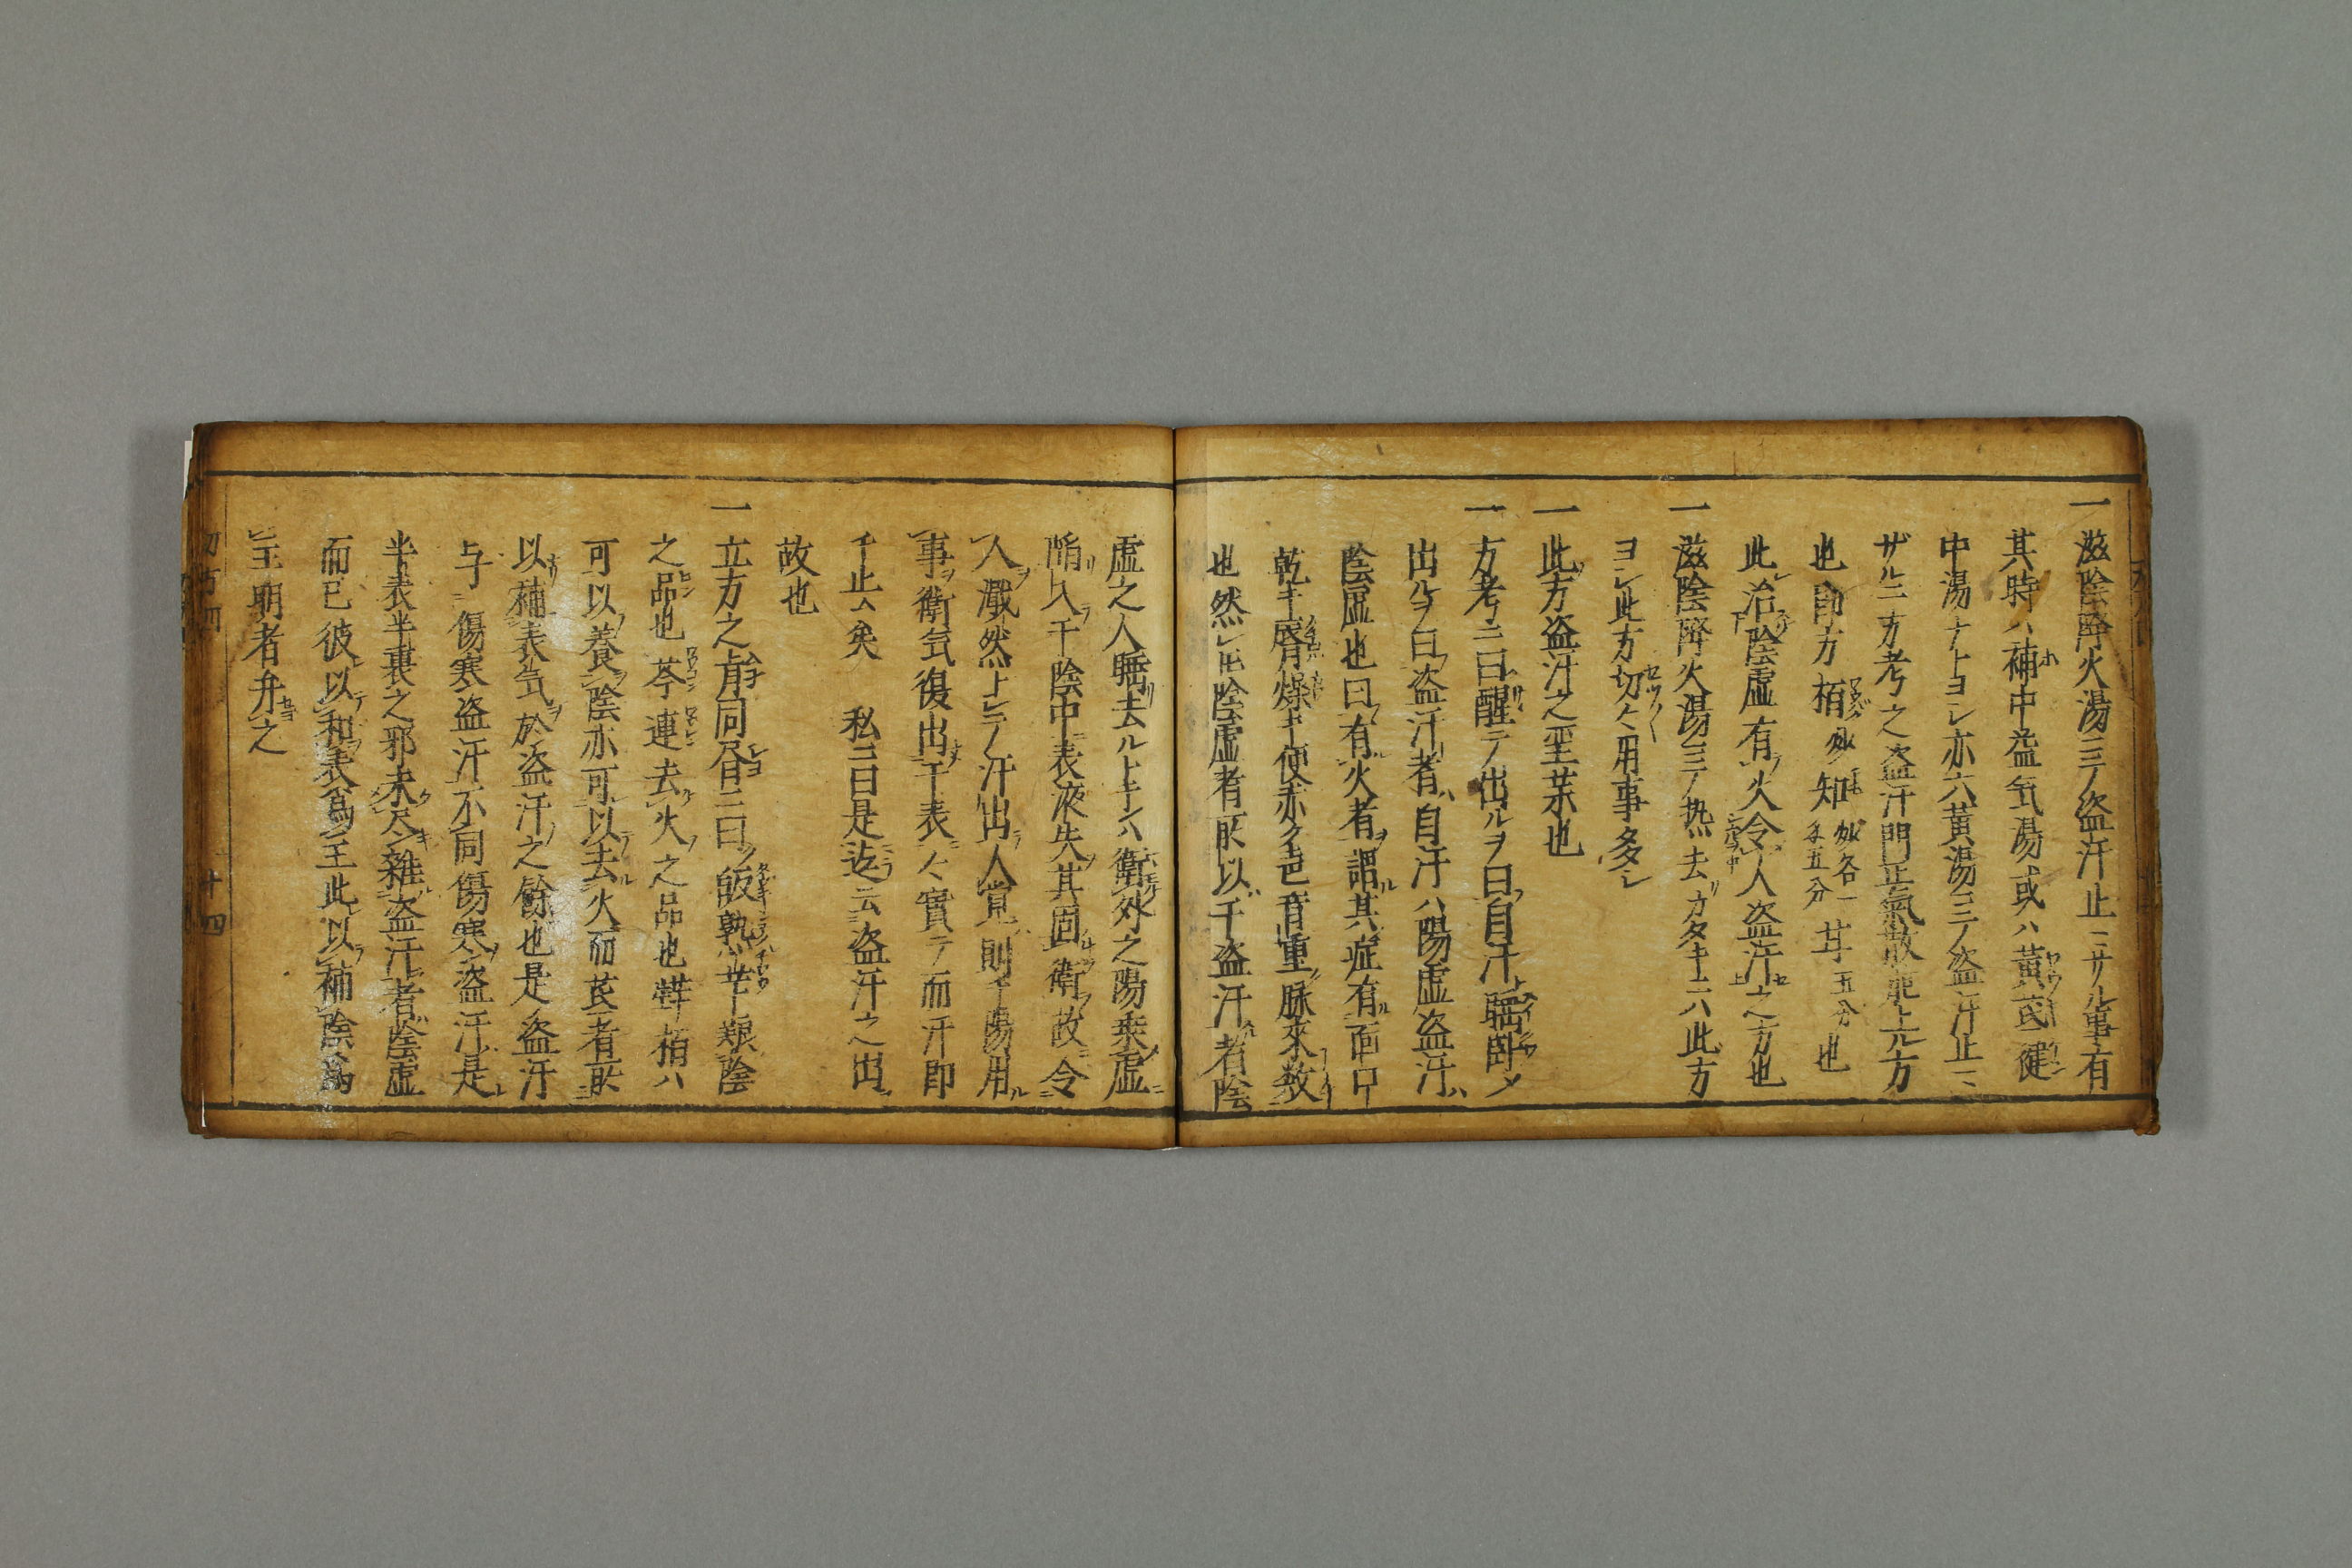 一滋陰降火湯ニテ盗汗止ニサル事有
其時ハ補中益気湯或ハ黄芪健
中湯ナトヨシ亦六黄湯ニテ盗汗止ニ
ザルニ方考之盗汗門正氣散能ト元方
也 即方 栢炒 知炒各一匁五分 甘五分 也
此治陰虚有火令人盗汗之方也
一滋陰降火湯ニテ熱去リカタキニハ此方
ヨシ此方切々用事多シ
一此方盗汗之聖薬也
一方考ニ曰醒テ出ルヲ曰自汗ト睡卧〆
出ルヲ曰盗汗者自汗ハ陽虚盗汗ハ
陰虚也曰有火者謂其症有面
乾キ唇燥キ使赤ク声音重脉來数
也然シ陰虚者所以ハ千盗汗者陰
虚之人睡去ルトキハ衛外之陽乗虚
入千陰中表液失其固衛故令
人濈然トシテ汗出人覚則千陽用
事衛気復出千表々實テ而汗即
千止ム矣 私云曰是迄云盗汗之出
故也
一立方之旨同昏ニ曰
之品也芩連去火之品也栢ハ
可以養陰亦可以去火而芪者所
以補表気於盗汗之餘也是盗汗
与傷寒盗汗不同傷寒盗汗是
半表半裏之邪未尽雜盗汗者陰虚
而已彼以和表爲主此以補陰爲
主明者弁之
十四